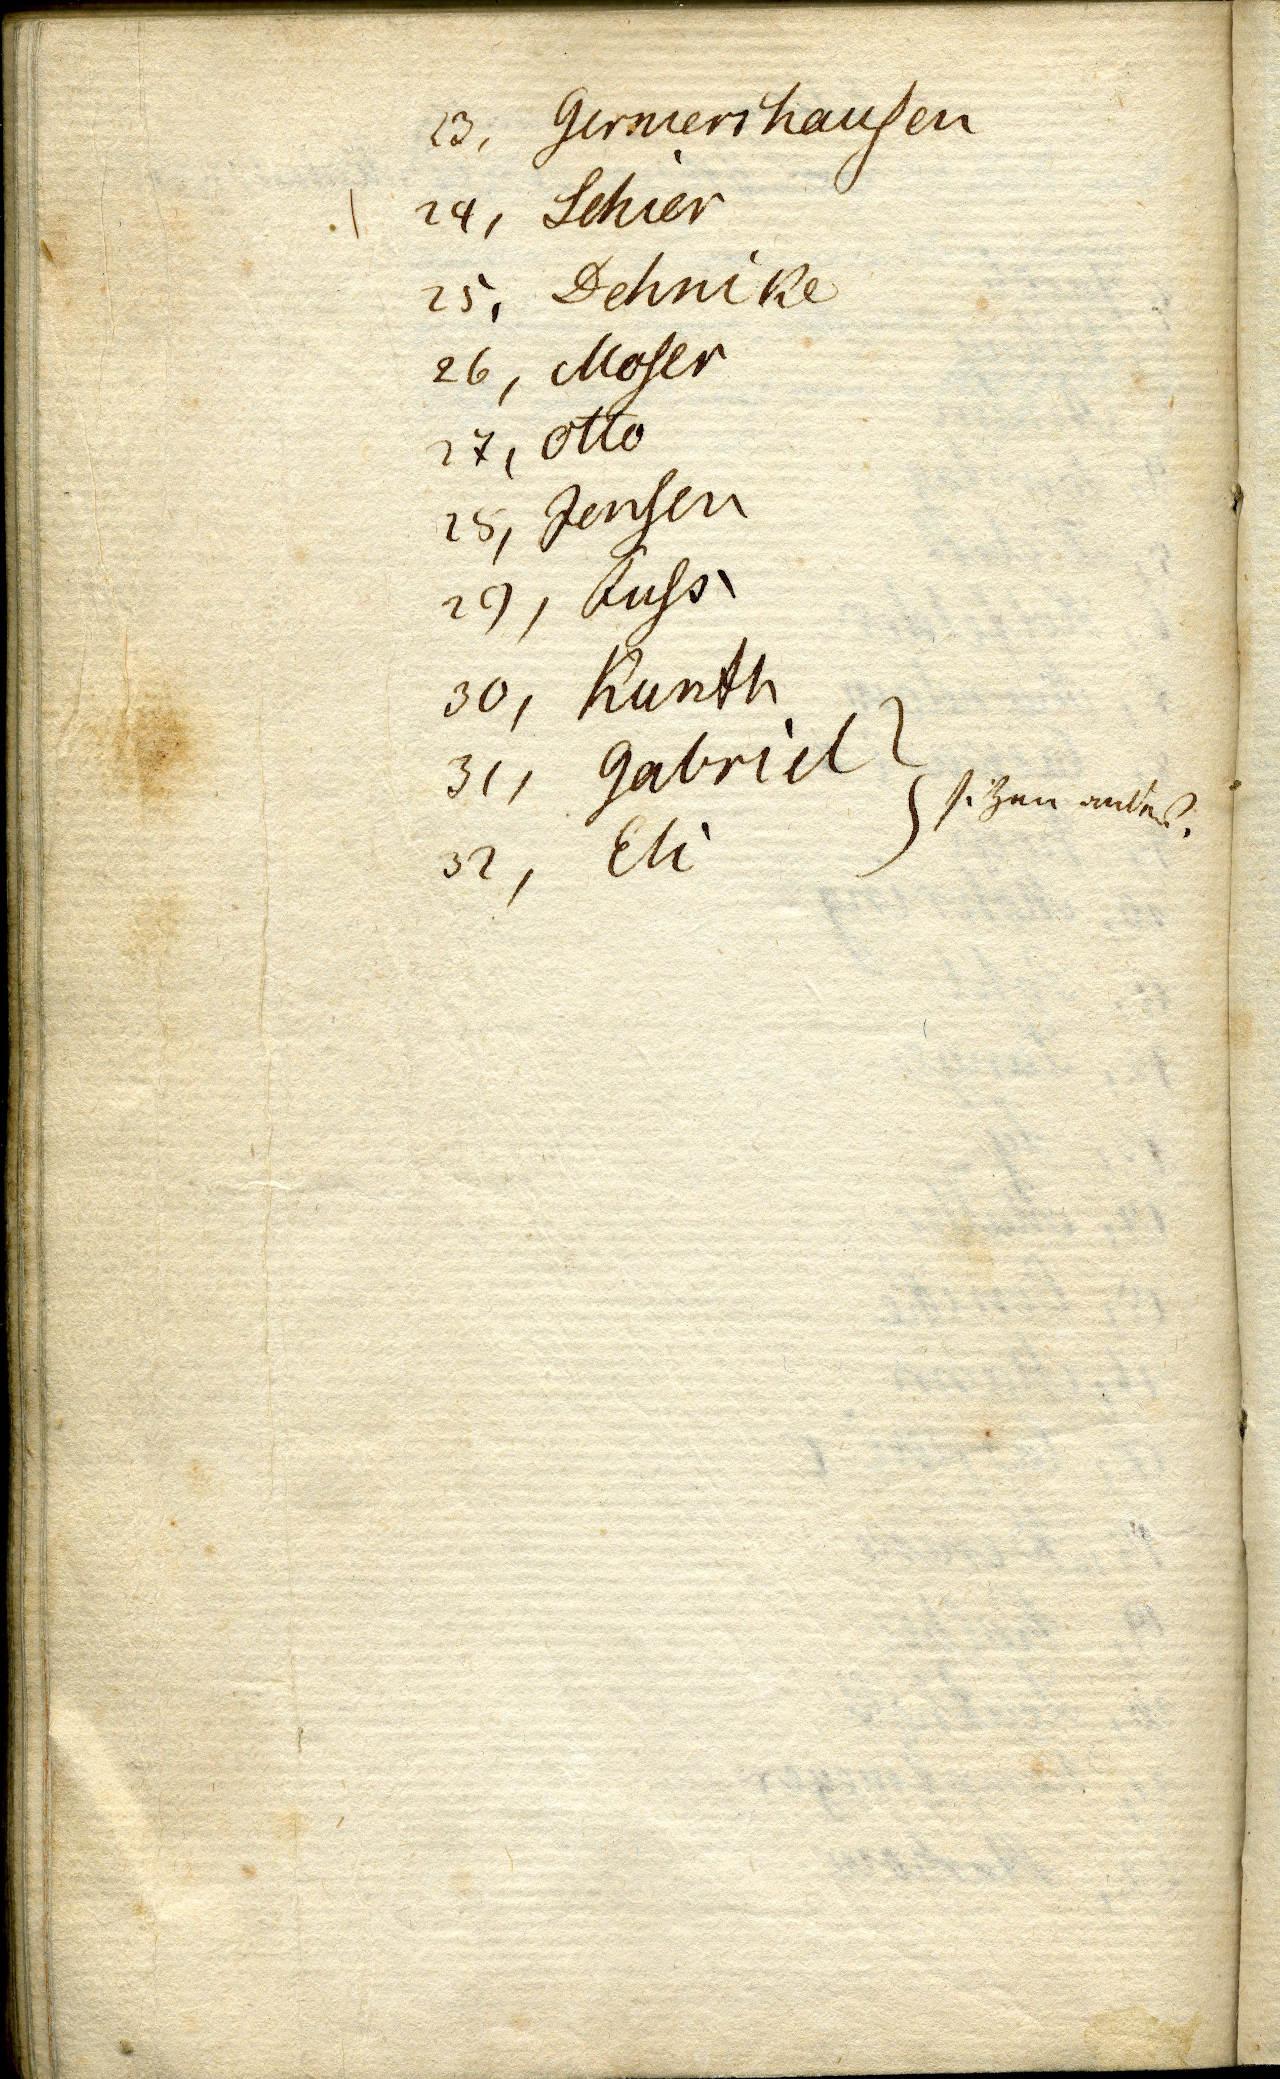 23, Germershausen
24, Schier
25, Dehnike
26, Moser
27, Otto
28, Jensen
29, Fuss
30, Kunth
31, Gabriel
sitzen
32, Eli